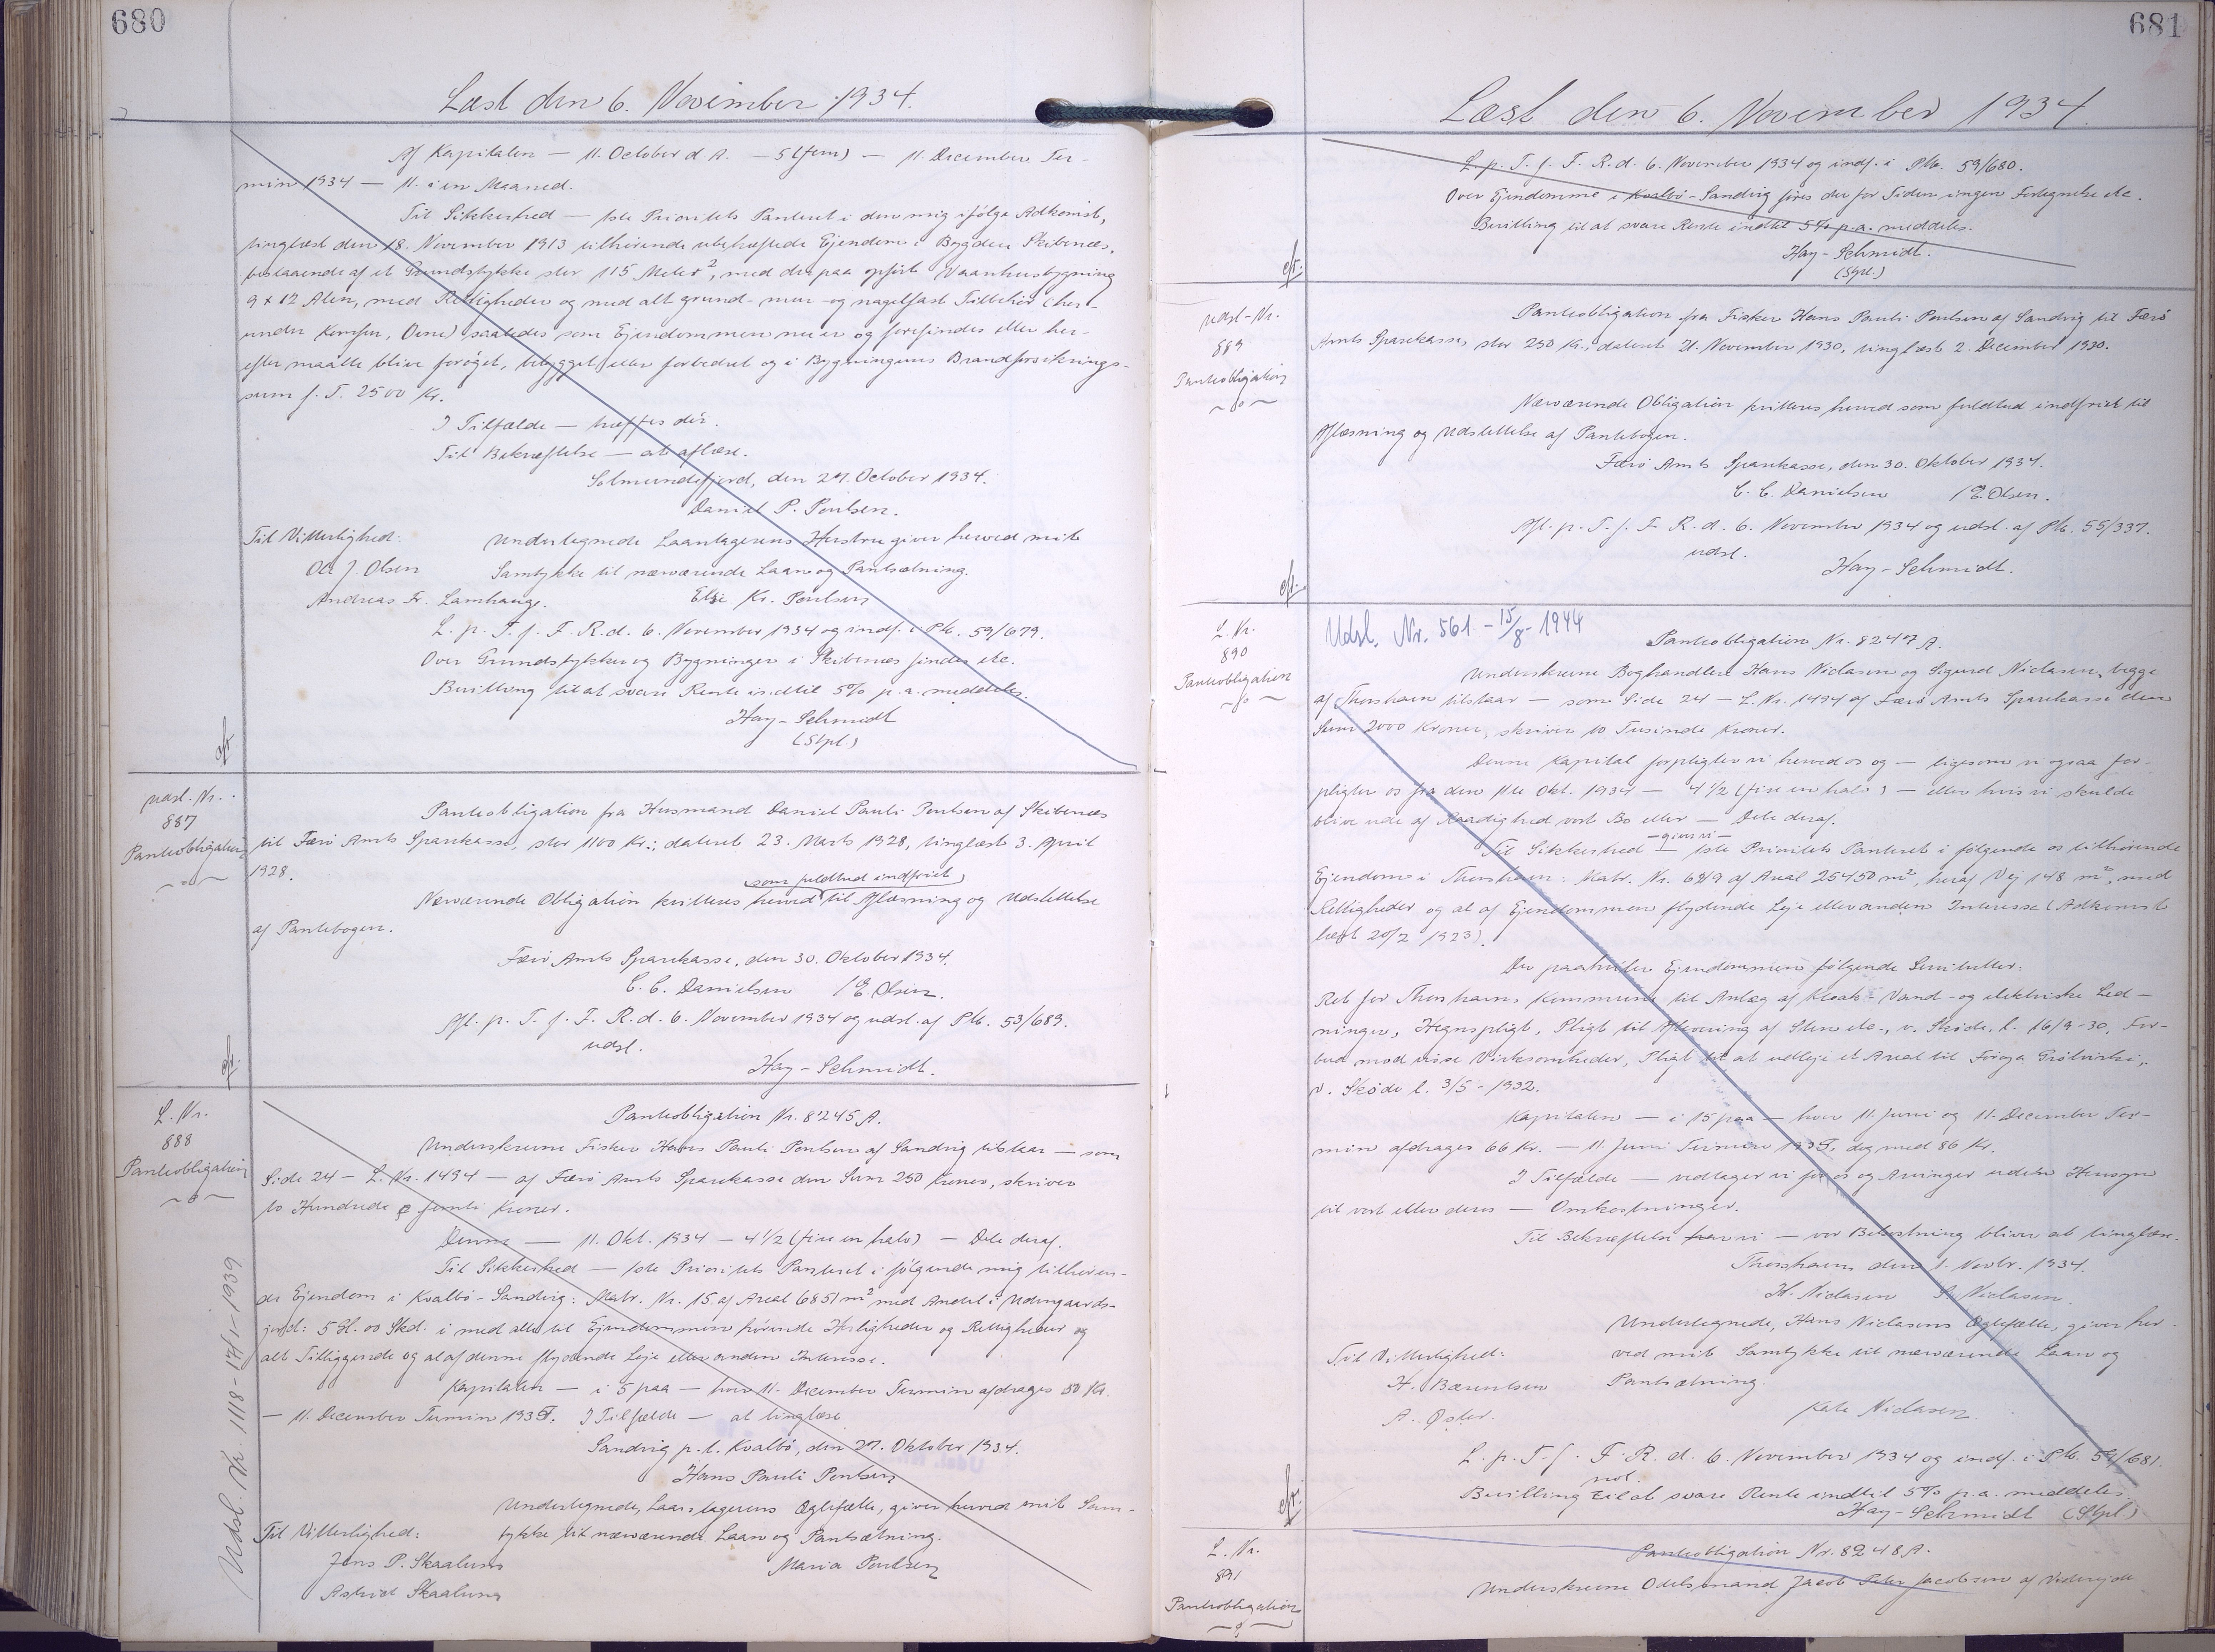 680
Læst den 6. November 1934.
Af Kapitalen — 11. October d. A. — 5 (fem) — 11. December Ter-
min 1934 — 11. i en Maaned.
Til Sikkerhed — 1ste Prioritets Panteret i den mig ifølge Adkomst,
tinglæst den 18. November 1913 tilhørende ubehæftede Ejendom i Bygden Skibenæs,
bestaaende af et Grundstykke stor 115 Meter², med derpaa opført Vaaanhusbygning
9 x 12 Alen, med Rettigheder og med alt grund- mur- og nagelfast Tilbehør (her-
under Komfur, Ovne) saaledes som Ejendommen nu er og forefindes eller her-
efter maatte blive forøget, bebygget eller forbedret og i Bygningens Brandforsikrings-
sum f. T. 2500 Kr.
I Tilfælde — træffes dér.
Til Bekræftelse — at aflæse.
Solmundefjord, den 27. October 1934.
Daniel P. Poulsen.
Til Vitterlighed: Undertegnede Laantagerens Hustru giver herved mit
Ole J. Olsen Samtykke til nærværende Laan og Pantsætning.
Andreas Fr. Lamhauge. Elsie Kr. Poulsen
L. p. T. f. F. R. d. 6. November 1934 og indf. i Pb. 59/679.
Over Grundstykker og Bygninger i Skibenæs findes etc.
Bevilling til at svare Rente indtil 5% p. a. meddeles.
Hay-Schmidt
(Stpl.)
eft.
Udsl. Nr.
887
Panteobligation
Panteobligation fra Husmand Daniel Pauli Poulsen af Skibenæs
til Færø Amts Sparekasse, stor 1100 Kr., dateret 23. Marts 1928, tinglæst 3. April
1928.
som fuldtud indfriet
Nærværende Obligation kvitteres herved til Aflæsning og Udslettelse
af Pantebogen.
Færø Amts Sparekasse, den 30. Oktober 1934.
C. C. Danielsen / E. Olsen.
Afl. p. T. f. F. R. d. 6. November 1934 og udsl. af Pb. 53/689.
udsl.
Hay-Schmidt.
eft.
L. Nr.
888
Panteobligation
Panteobligation Nr. 8245 A.
Underskrevne Fisker Hans Pauli Poulsen af Sandvig tilstaar — som
Side 24 — L. Nr. 1494 — af Færø Amts Sparekasse den Sum 250 Kroner, skriver
to Hundrede og femti Kroner.
Denne — 11. Okt. 1934 — 4 1/2 (fire en halv) — Dele deraf.
Til Sikkerhed — 1ste Prioritets Panteret i følgende mig tilhøren-
de Ejendom i Kvalbø-Sandvig: Matr. Nr. 15 af Areal 6851 m² med Andel i Udengaards-
jord: 5 Gl. 00 Skd. i med alle til Ejendommen hørende Herligheder og Rettigheder og
alt Tilliggende og al af denne flydende Leje eller anden Interesse.
Kapitalen — i 5 paa — hver 11. December Termin afdrages 50 Kr.
— 11. December Termin 1935. I Tilfælde — at tinglæse
Sandvig p. t. Kvalbø, den 27. Oktober 1934.
Hans Pauli Poulsen
Undertegnede, Laantagerens Ægtefælle, giver herved mit Sam-
Til Vitterlighed: tykke til nærværende Laan og Pantsætning.
Jens P. Skaalum Maria Poulsen
Astrid Skaalum
Udsl. Nr. 1118 - 17/1 - 1939
681
Læst den 6. November 1934.
L. p. T. f. F. R. d. 6. November 1934 og indf. i Pb. 59/680.
Over Ejendomme i Kvalbø-Sandvig føres der for Tiden ingen Fortegnelse etc.
Bevilling til at svare Rente indtil 5% p. a. meddeles.
Hay-Schmidt.
(Stpl.)
eft.
Udsl-Nr.
889
Panteobligation
Panteobligation fra Fisker Hans Pauli Poulsen af Sandvig til Færø
Amts Sparekasse, stor 250 Kr., dateret 21. November 1930, tinglæst 2. December 1930.
Nærværende Obligation kvitteres herved som fuldtud indfriet til
Aflæsning og Udslettelse af Pantebogen.
Færø Amts Sparekasse, den 30. Oktober 1934.
C. C. Danielsen / E. Olsen.
Afl. p. T. f. F. R. d. 6. November 1934 og udsl. af Pb. 55/337.
udsl.
Hay-Schmidt.
eft.
L. Nr.
890
Panteobligation
Udsl. Nr. 561 - 15/8 - 1944
Panteobligation Nr. 8247 A.
Underskrevne Boghandlere Hans Niclasen og Sigurd Niclasen, begge
af Thorshavn tilstaar — som Side 24 — L. Nr. 1494 af Færø Amts Sparekasse den
Sum 2000 Kroner, skriver to Tusinde Kroner.
Denne Kapital forpligter vi herved os og — ligesom vi ogsaa for-
pligter os fra den 11te Okt. 1934 — 4 1/2 (fire en halv) — eller hvis vi skulde
blive ude af Raadighed vort Bo eller — Dele deraf.
— giver vi —
Til Sikkerhed — 1ste Prioritets Panteret i følgende os tilhørende
Ejendom i Thorshavn: Matr. Nr. 689 af Areal 25450 m², heraf Vej 148 m², med
Rettigheder og al af Ejendommen flydende Leje eller anden Interesse (Adkomst
læst 20/2 1923).
Der paahviler Ejendommen følgende Servitutter:
Ret for Thorshavns Kommune til Anlæg af Kloak- Vand- og elektriske Led-
ninger, Hegnspligt, Pligt til Aflevering af Sten etc., v. Skøde, l. 16/9-30, For-
bud mod visse Virksomheder, Pligt til at udleje et Areal til Føroya
v. Skøde l. 3/5 - 1932.
Kapitalen — i 15 paa — hver 11. Juni og 11. December Ter-
min afdrages 66 Kr. — 11. Juni Termin 1935, dog med 86 Kr.
I Tilfælde — vedtager vi for os og Arvinger uden Hensyn
til vort eller deres — Omkostninger.
Til Bekræftelse har vi — vor Bekostning bliver at tinglæse.
Thorshavn, den 1. Novbr. 1934.
H. Niclasen S. Niclasen.
Undertegnede, Hans Niclasens Ægtefælle, giver her-
Til Vitterlighed: ved mit Samtykke til nærværende Laan og
H. Bærentsen Pantsætning.
A. Øster. Kate Niclasen
L. p. T. f. F. R. d. 6. November 1934 og indf. i Pb. 59/681.
not.
Bevilling til at svare Rente indtil 5% p. a. meddeles.
Hay-Schmidt (Stpl.)
eft.
L. Nr.
891
Panteobligation
Panteobligation Nr. 8248 A.
Underskrevne Odelsmand Jacob Peter Jacobsen af Viderejde